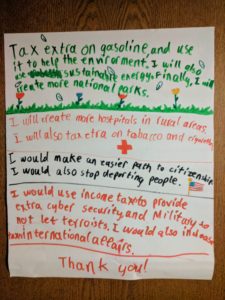 Tax extra on gasoline, and use
it to help the enviorment. I will also
use sustainable energy. Finally, I will
create more national parks.
I will create more hospitals in rural areas.
I will also tax etra on tabacco and
I would make an easier path to citizenship
I would also stop deporting people.
I would use income tax to provide
extra cyber security, and military so
not let terroists. I would also
in international affairs.
Thank you!